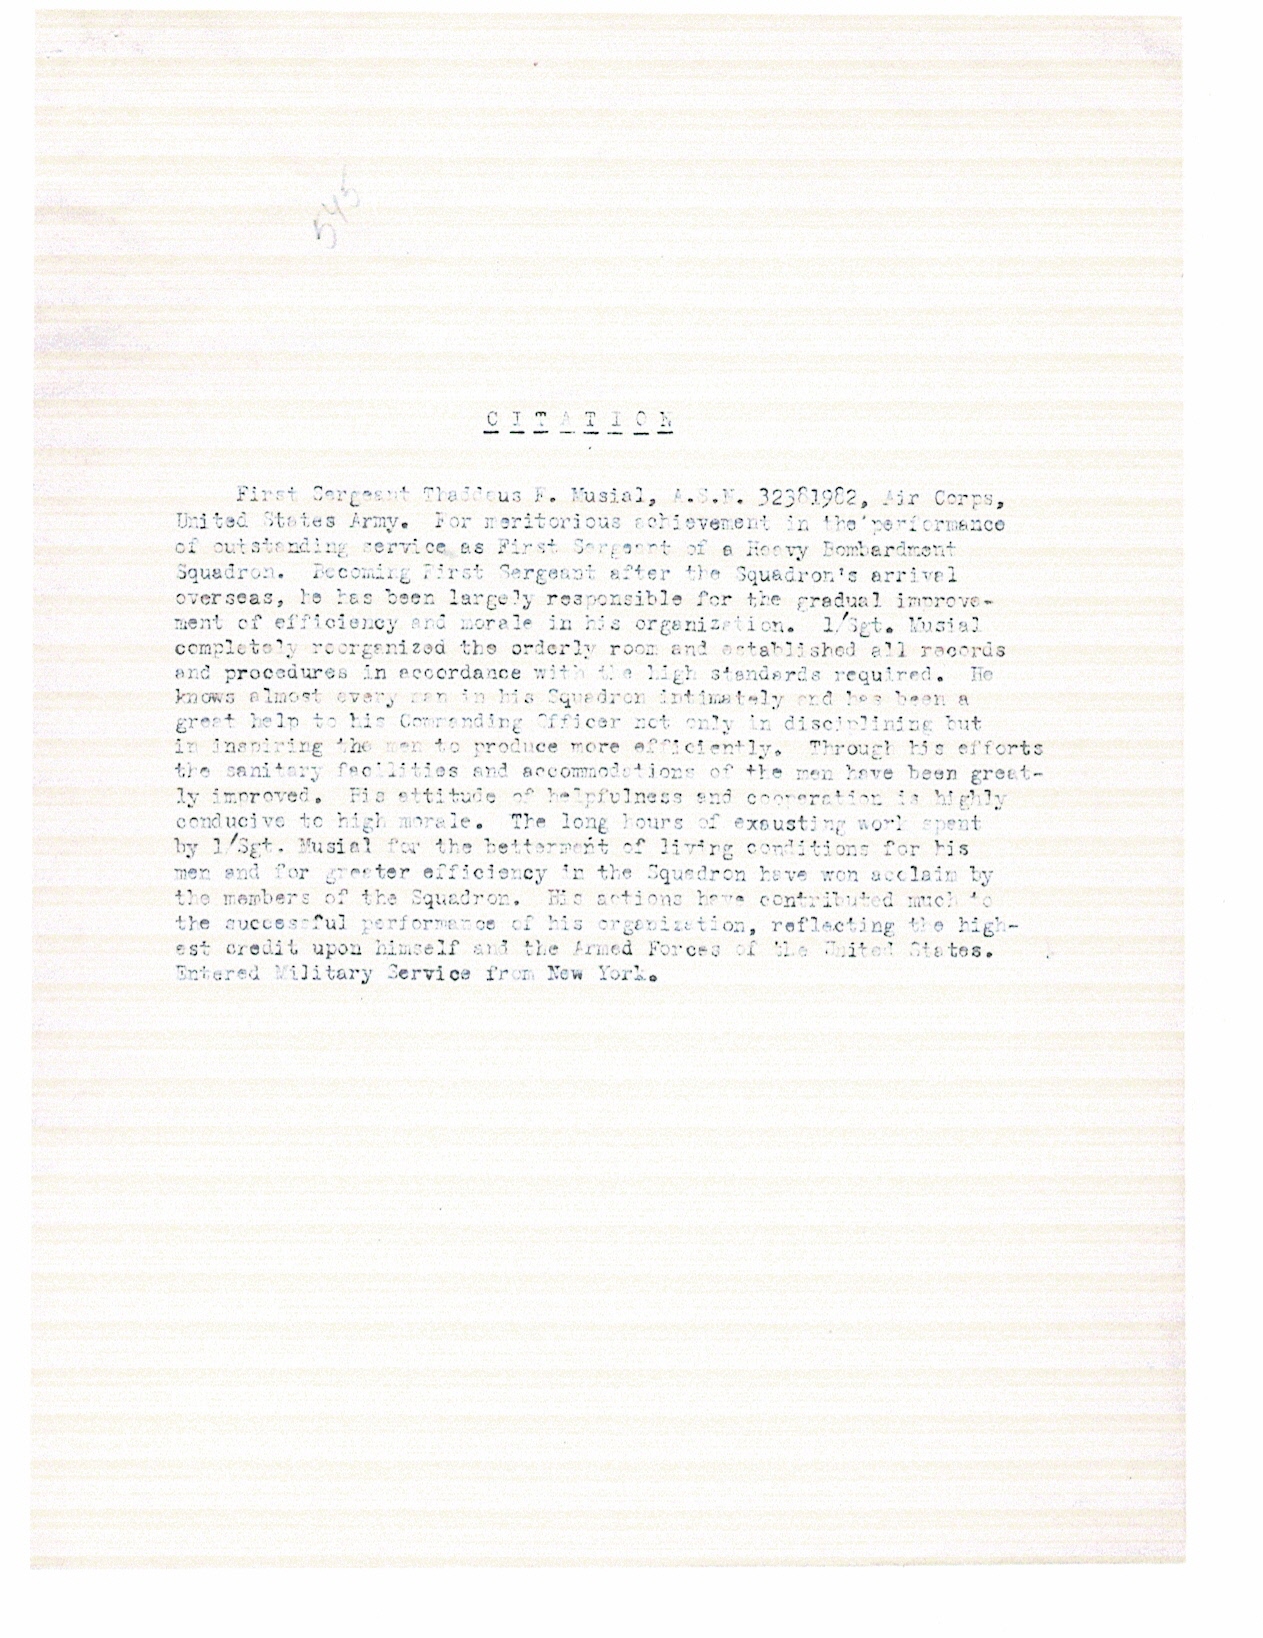 545
C I T A T I O N
First Sergeant Thaddeus F. Musial, A.S.N. 32381982, Air Corps,
United States Army. For meritorious achievement in the performance
of outstanding service as First Sergeant of a Heavy Bombardment
Squadron. Becoming First Sergeant after the Squadron's arrival
overseas, he has been largely responsible for the gradual improve-
ment of efficiency and morale in his organization. 1/Sgt. Musial
completely reorganized the orderly room and established all records
and procedures in accordance with the high standards required. He
knows almost every man in his Squadron intimately and has been a
great help to his Commanding Officer not only in disciplining but
in inspiring the men to produce more efficiently. Through his efforts
the sanitary facilities and accommodations of the men have been great-
ly improved. His attitude of helpfulness and cooperation is highly
conducive to high morale. The long hours of exausting work spent
by 1/Sgt. Musial for the betterment of living conditions for his
men and for greater efficiency in the Squadron have won acclaim by
the members of the Squadron. His actions have contributed much to
the successful performance of his organization, reflecting the high-
est credit upon himself and the Armed Forces of the United States.
Entered Military Service from New York.